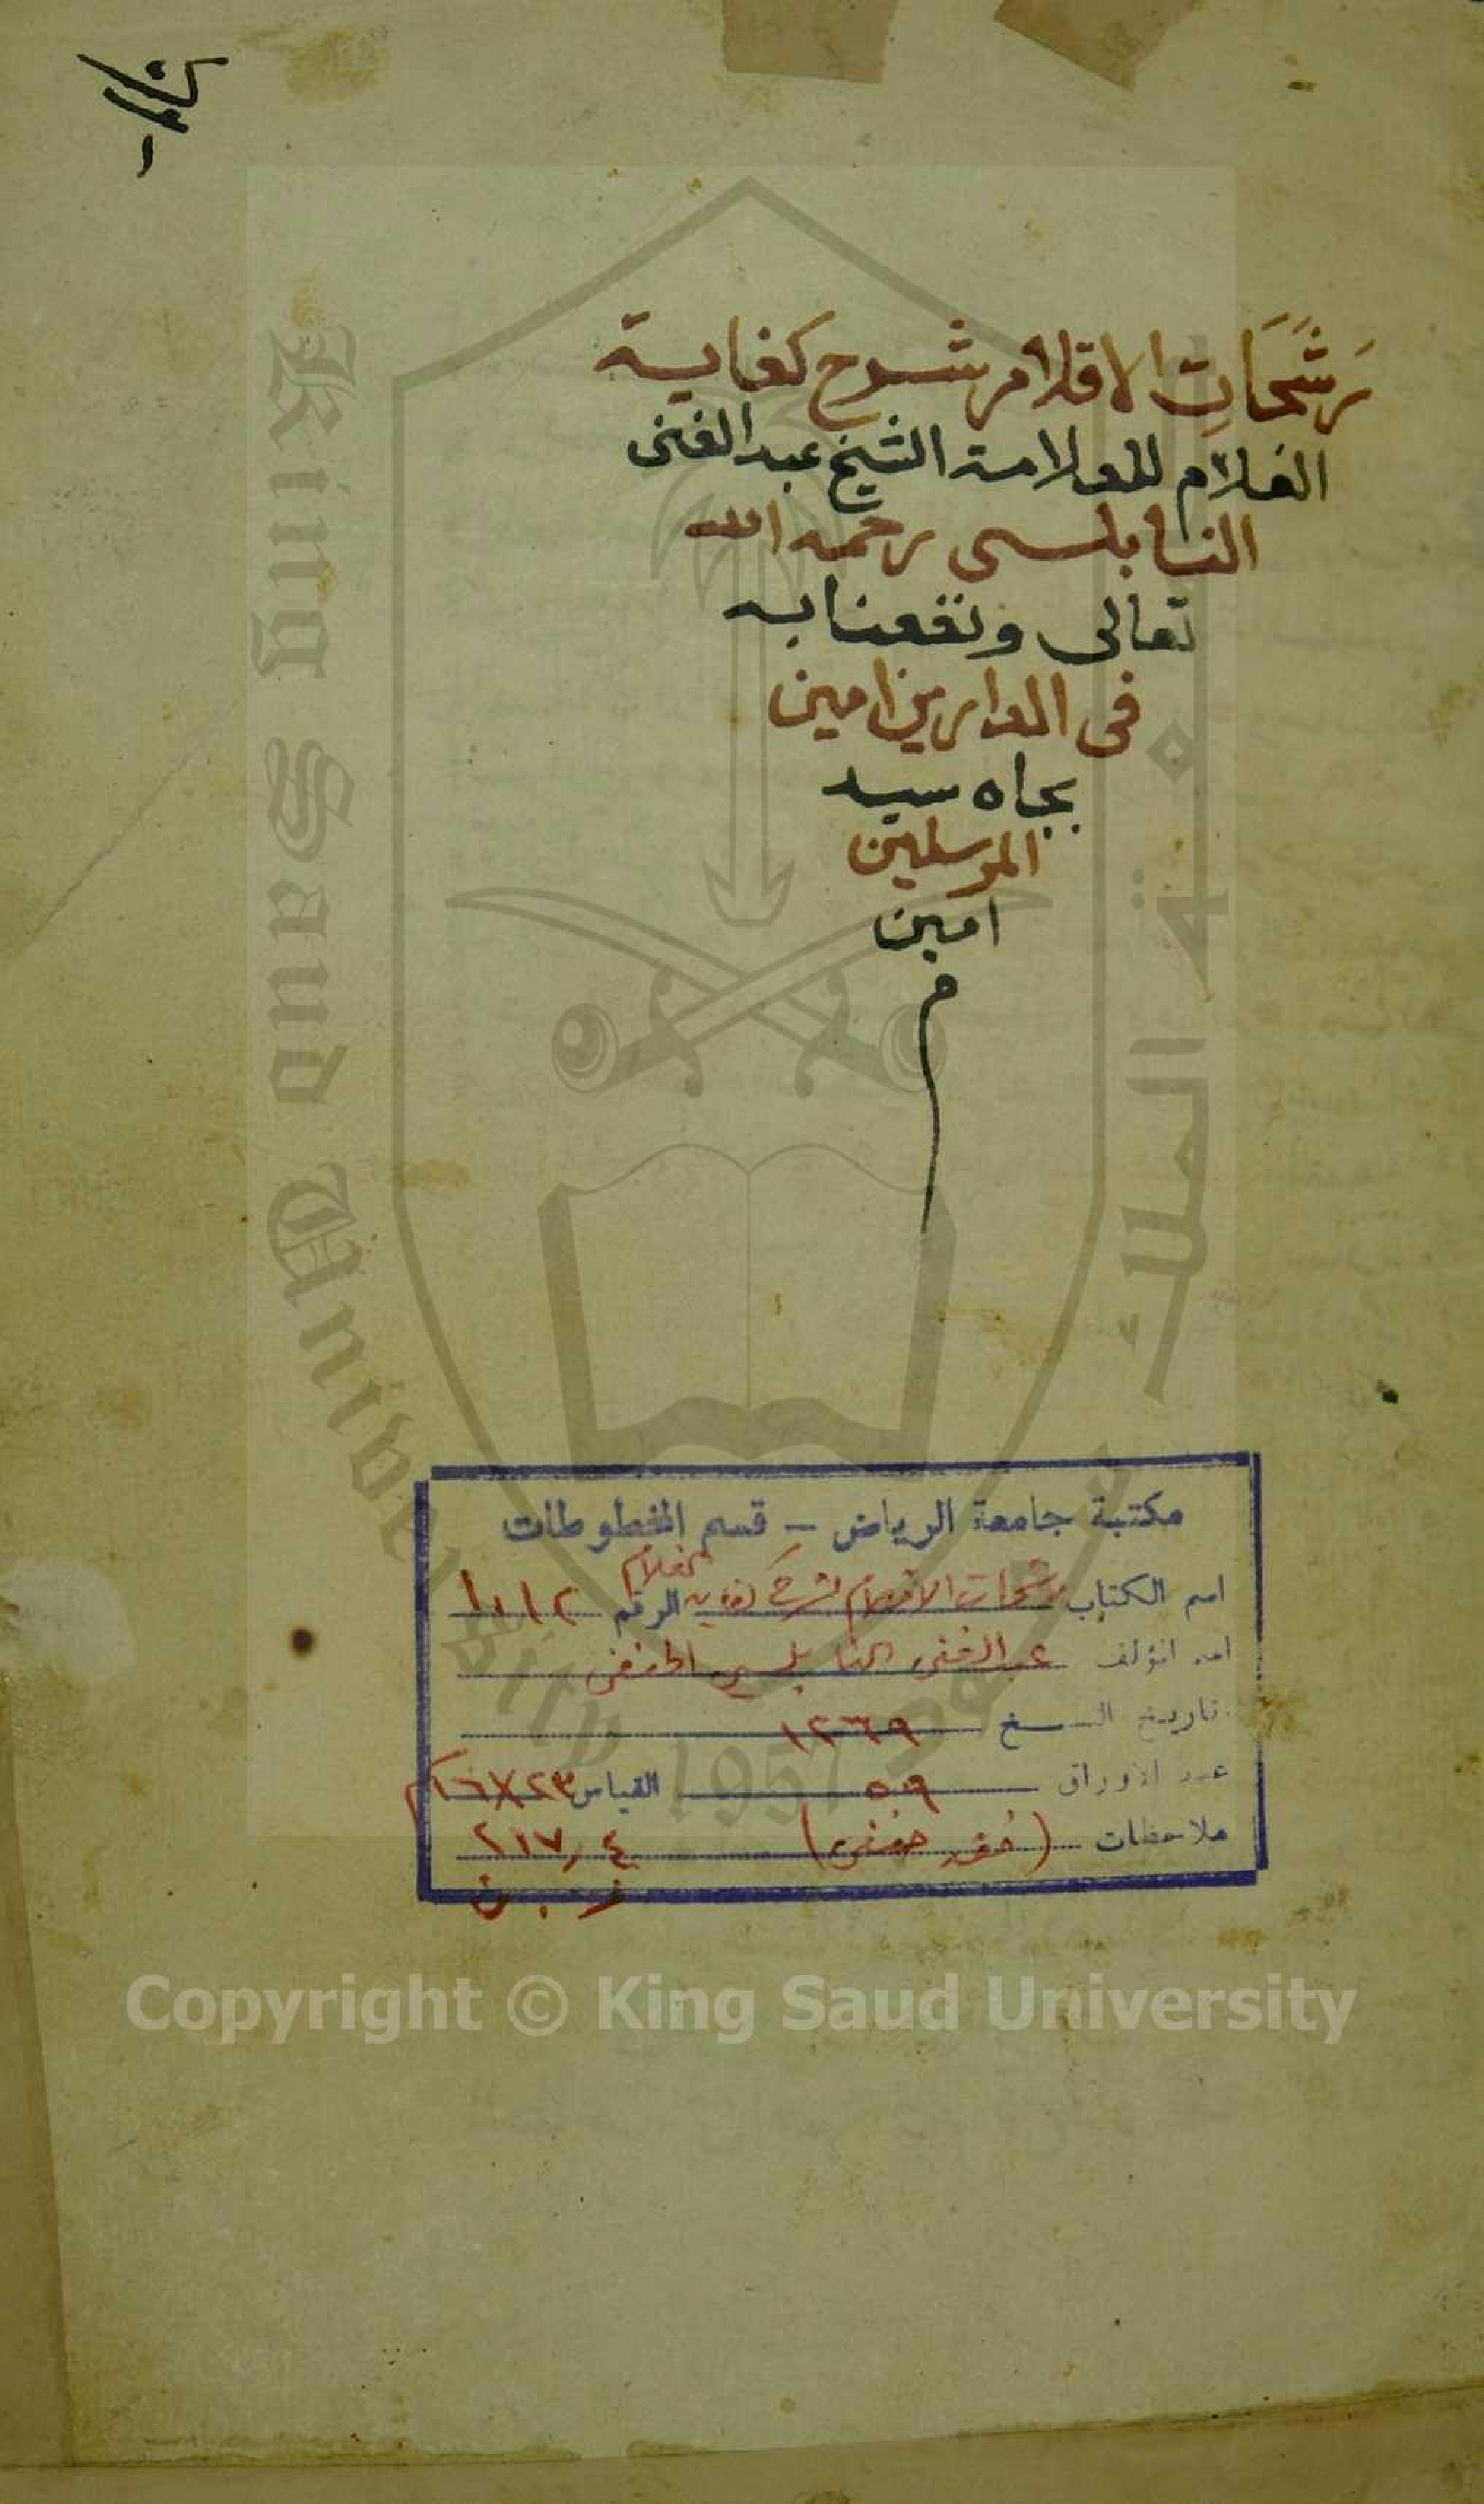 رَشَحَاتِ الاقلام شرح كفاية
الغلام للعلامة الشيخ عبد الغنى
النابلسى رحمه الله
تعالى ونفعنا به
فى الدارين امين
بجاه سيد
المرسلين
امين
م
مكتبة جامعة الرياض – قسم المخطوطات
اسم الكتاب رشحات الاقلام شرح كفاية الغلام الرقم
اسم المؤلف عبد الغنى النابلسي الحنفى
تاريخ النسخ ١٢٦٩
عدد الاوراق ٥٩ القياس ٢٣×١٦ سم
ملاحظات (فقه حنفى) ٢١٧٫٤
King Saud University
1957
Copyright © King Saud University